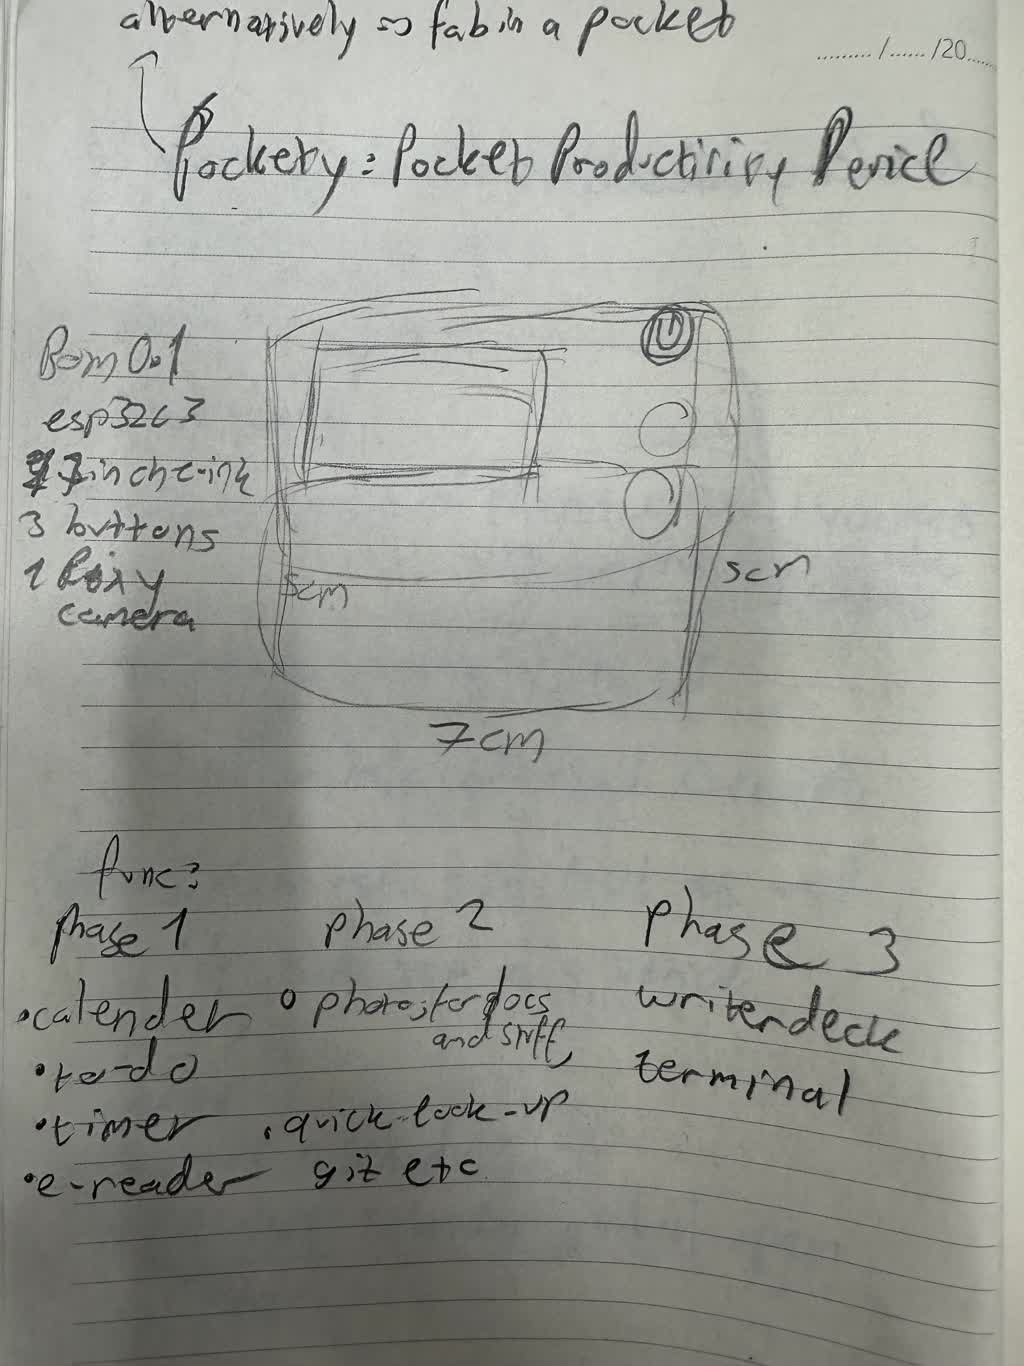 alternatively => fab in a pocket
......... / ...... /20......
Pockety: Pocket Productivity Device
Bom 0.1
esp32c3
inch e-ink
3 buttons
1
camera
5cm
5cm
7cm
func:
phase 1
phase 2
phase 3
• calender
• to-do
• timer
• e-reader
o photos, for docs
and stuff
• quick look-up
git etc
writerdeck
terminal